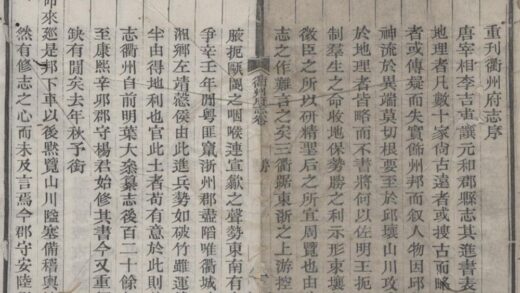 重刊衢州府志序
唐宰相李吉甫譔元和郡縣志其進書表
地理者凡數十家尙古遠者或搜古而略
者或傳疑而失實飾州邦而叙人物因邱
神流於異端莫切根要至於邱壤山川攻
於地理者皆略而不書將何以佐明王扼
制羣生之命收地保勢勝之利示形束壤
微臣之所以研精聖后之所宜周覽也由
志之作難言之矣三衢踞東浙之上游控
衢州府志卷 序
腋扼甌閩之咽喉連宣歙之聲勢東南有
爭辛壬年閒粵匪竄浙州郡盡陷唯衢城
湘鄉左侯由此進兵勢如破竹雖運
半由得地利也官此土者苟有意於此則
志衢州自前明葉大參纂志後百二十餘
至康熙辛卯郡守楊君始修其書今又重
缺有閒矣去年秋予銜
命來經是邦下車以後黙覽山川隘塞備稽輿
然有修志之心而未及言焉今郡守安陸